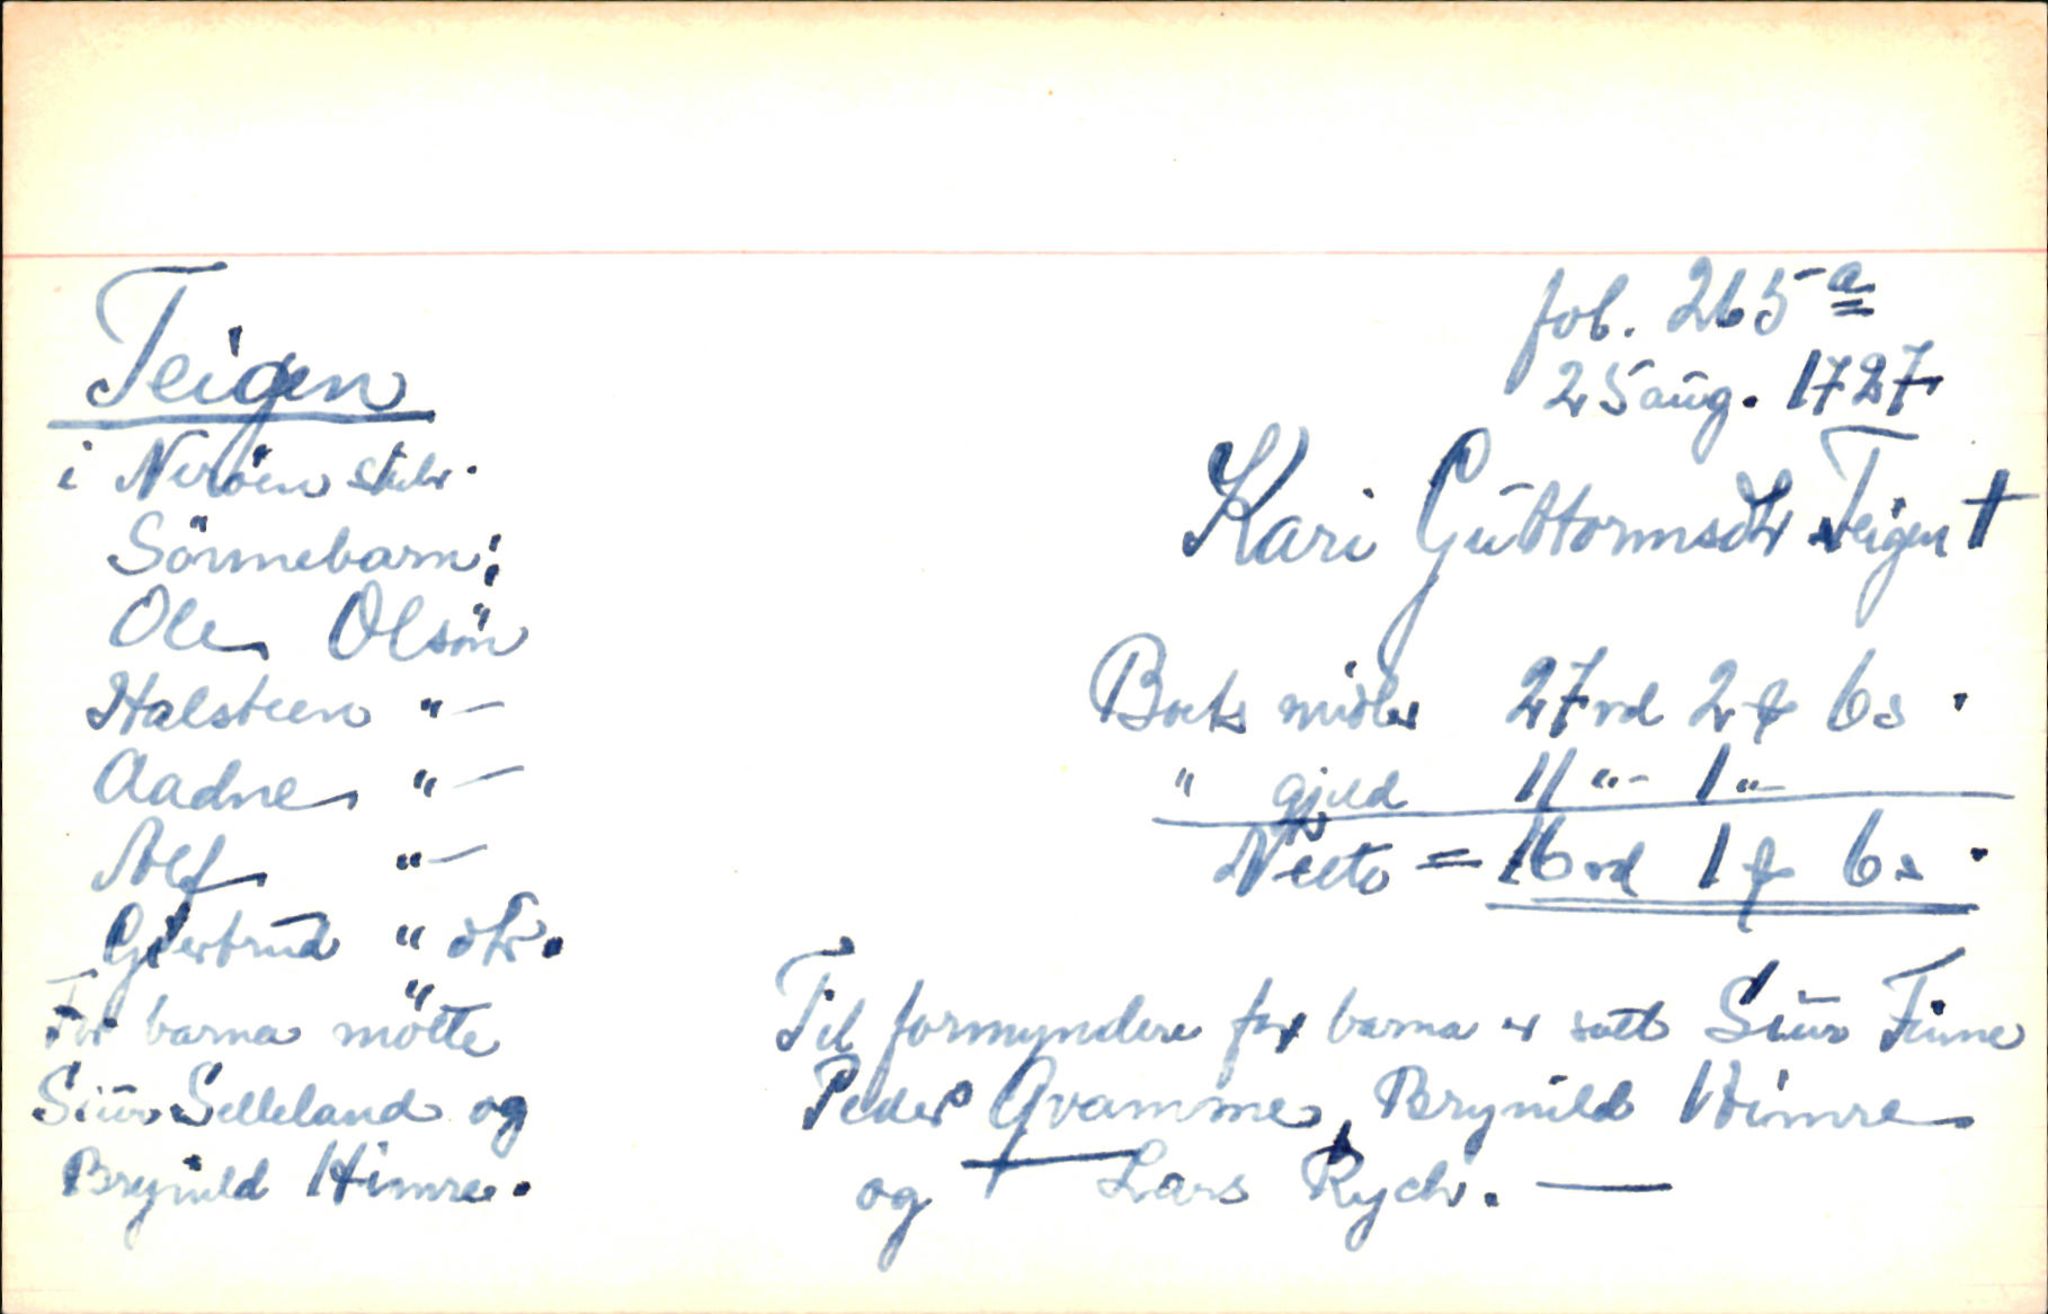 Teigen
i Neröen skr.
Sönnebarn:
Ole Olsön
Halsteen "—
Aadne "—
Alf "—
Giertrud " dtr.
For barna mötte
Siur Selleland og
Brynild Himre.
fol. 265 a
25 aug. 1727
Kari Guttormsdtr Teigen †
Boets midler 27 rd 2 # 6 s.
" gjeld 11 "- 1 "-
Netto = 16 rd 1 # 6 s.
Til formyndere for barna er satt Siur Finne
Peder Qvamme, Brynild Himre
og Lars Rych. —